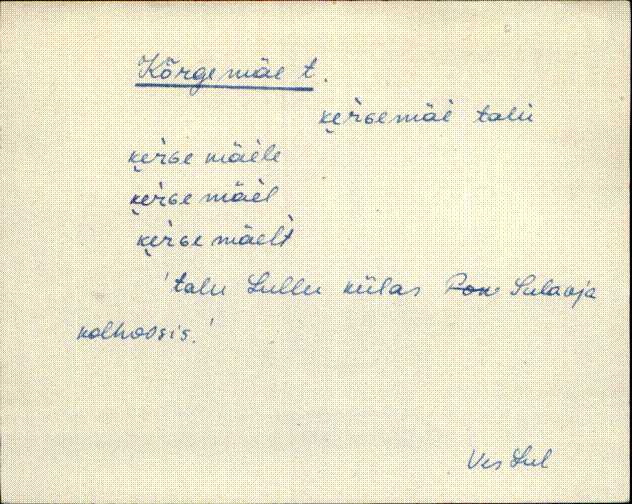 Kõrgemäe t.
ke̮rɢemäe talu
ke̮rɢe mäele
ke̮rɢe mäel
ke̮rɢe mäelt
'talu Lullu külas Sulaoja
kolhoosis.'
Ves Lul